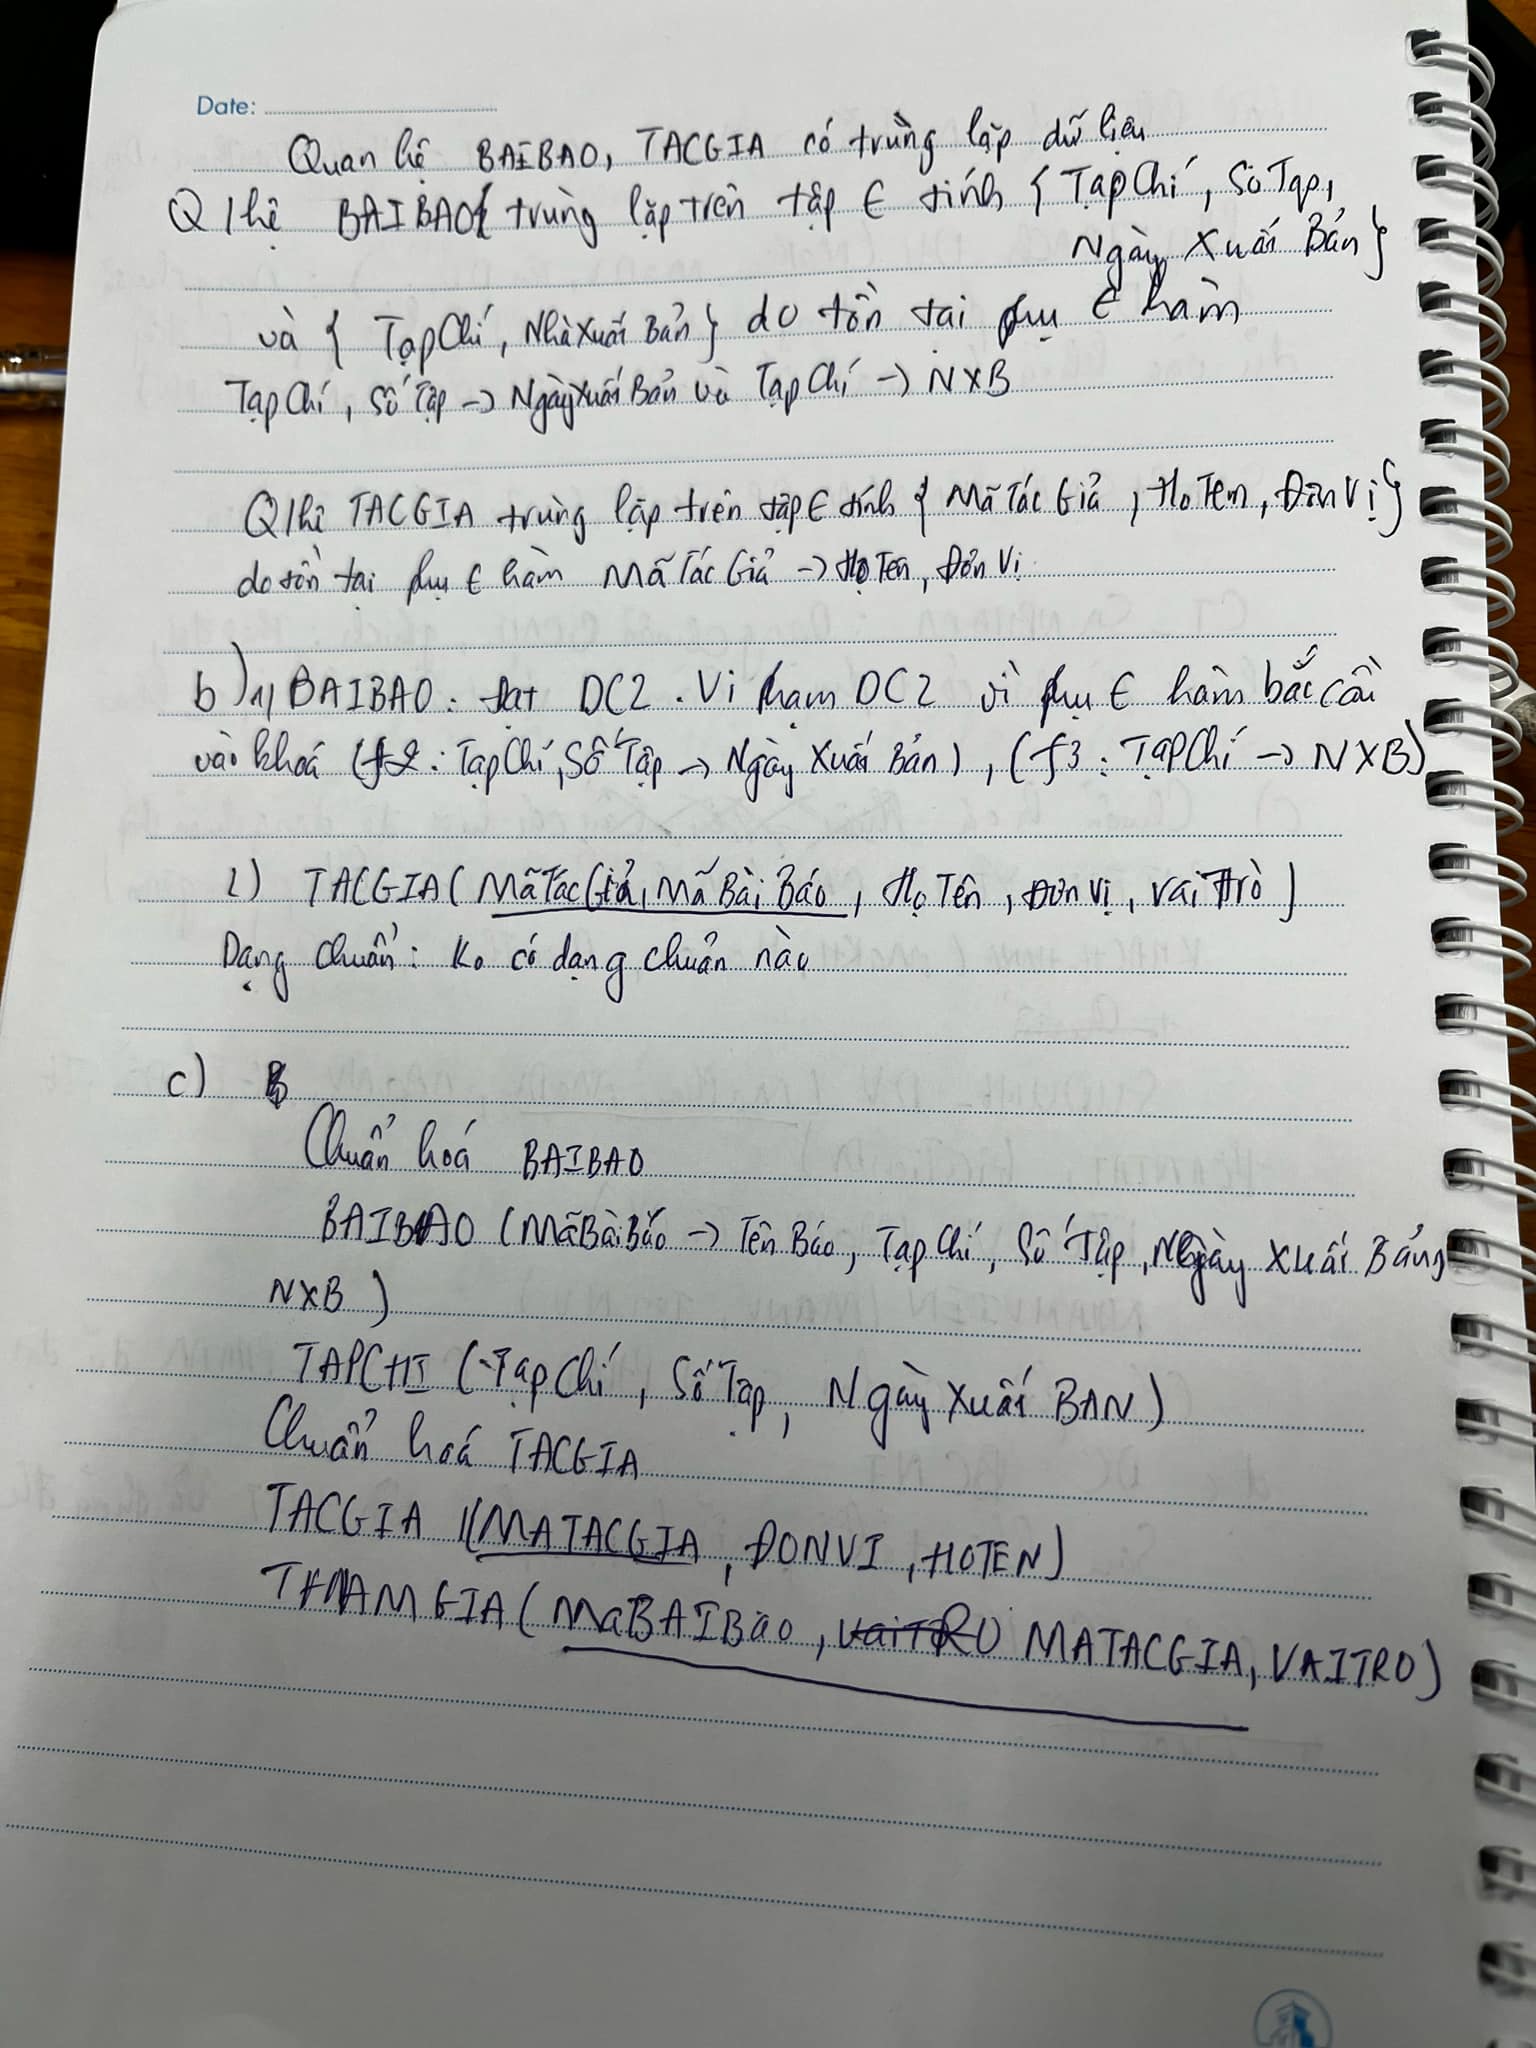 Date:
Quan hệ BAIBAO, TACGIA có trùng lặp dữ liệu
Q/hệ BAIBAO trùng lặp trên tập € tính { TạpChí, Số Tập,
Ngày Xuất Bản }
và { TạpChí, NhàXuất Bản } do tồn tại phụ € hàm
TạpChí, Số Tập → NgàyXuất Bản và TạpChí → NXB
Q/hệ TACGIA trùng lặp trên tập € tính { Mã Tác Giả, Họ Tên, Đơn Vị }
do tồn tại phụ € hàm Mã Tác Giả → Họ Tên, Đơn Vị
b) 1) BAIBAO: đạt DC2. Vi phạm DC2 vì phụ € hàm bắc cầu
vào khoá (f2: TạpChí, Số Tập → Ngày Xuất Bản), (f3: TạpChí → NXB)
2) TACGIA( MãTác Giả, Mã Bài Báo, Họ Tên, Đơn Vị, Vai trò )
Dạng chuẩn: Ko có dạng chuẩn nào
c)
Chuẩn hoá BAIBAO
BAIBAO (MãBàiBáo → Tên Báo, Tạp Chí, Số Tập, Ngày Xuất Bản,
NXB )
TAPCHI (Tạp Chí, Số Tập, Ngày Xuất BAN)
Chuẩn hoá TACGIA
TACGIA (MATACGIA, ĐONVI, HOTEN)
THAMGIA( MaBAIBao, VaiTRO MATACGIA, VAITRO)